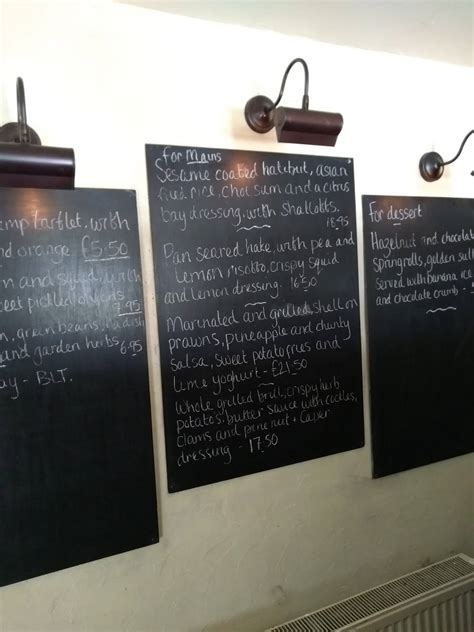 mp tartlet, with
nd orange £5.50
n and squid, with
sweet pickled onions
7.95
n, green beans, radish
and garden herbs 6.95
ay - BLT.
For Mains
Sesame coated halibut, asian
fried rice, choi sum and a citrus
bay dressing, with shallots.
18.95
Pan seared hake, with pea and
lemon risotto, crispy squid
and lemon dressing. 16.50
Marinated and grilled, shell on
prawns, pineapple and chunky
salsa, sweet potato fries and
lime yoghurt - £21.50
Whole grilled brill, crispy herb
potatoes, butter sauce with cockles,
clams and pine nut + caper
dressing - 17.50
For dessert
Hazelnut and chocola
springrolls, golden sult
served with banana ice
and chocolate crumb -